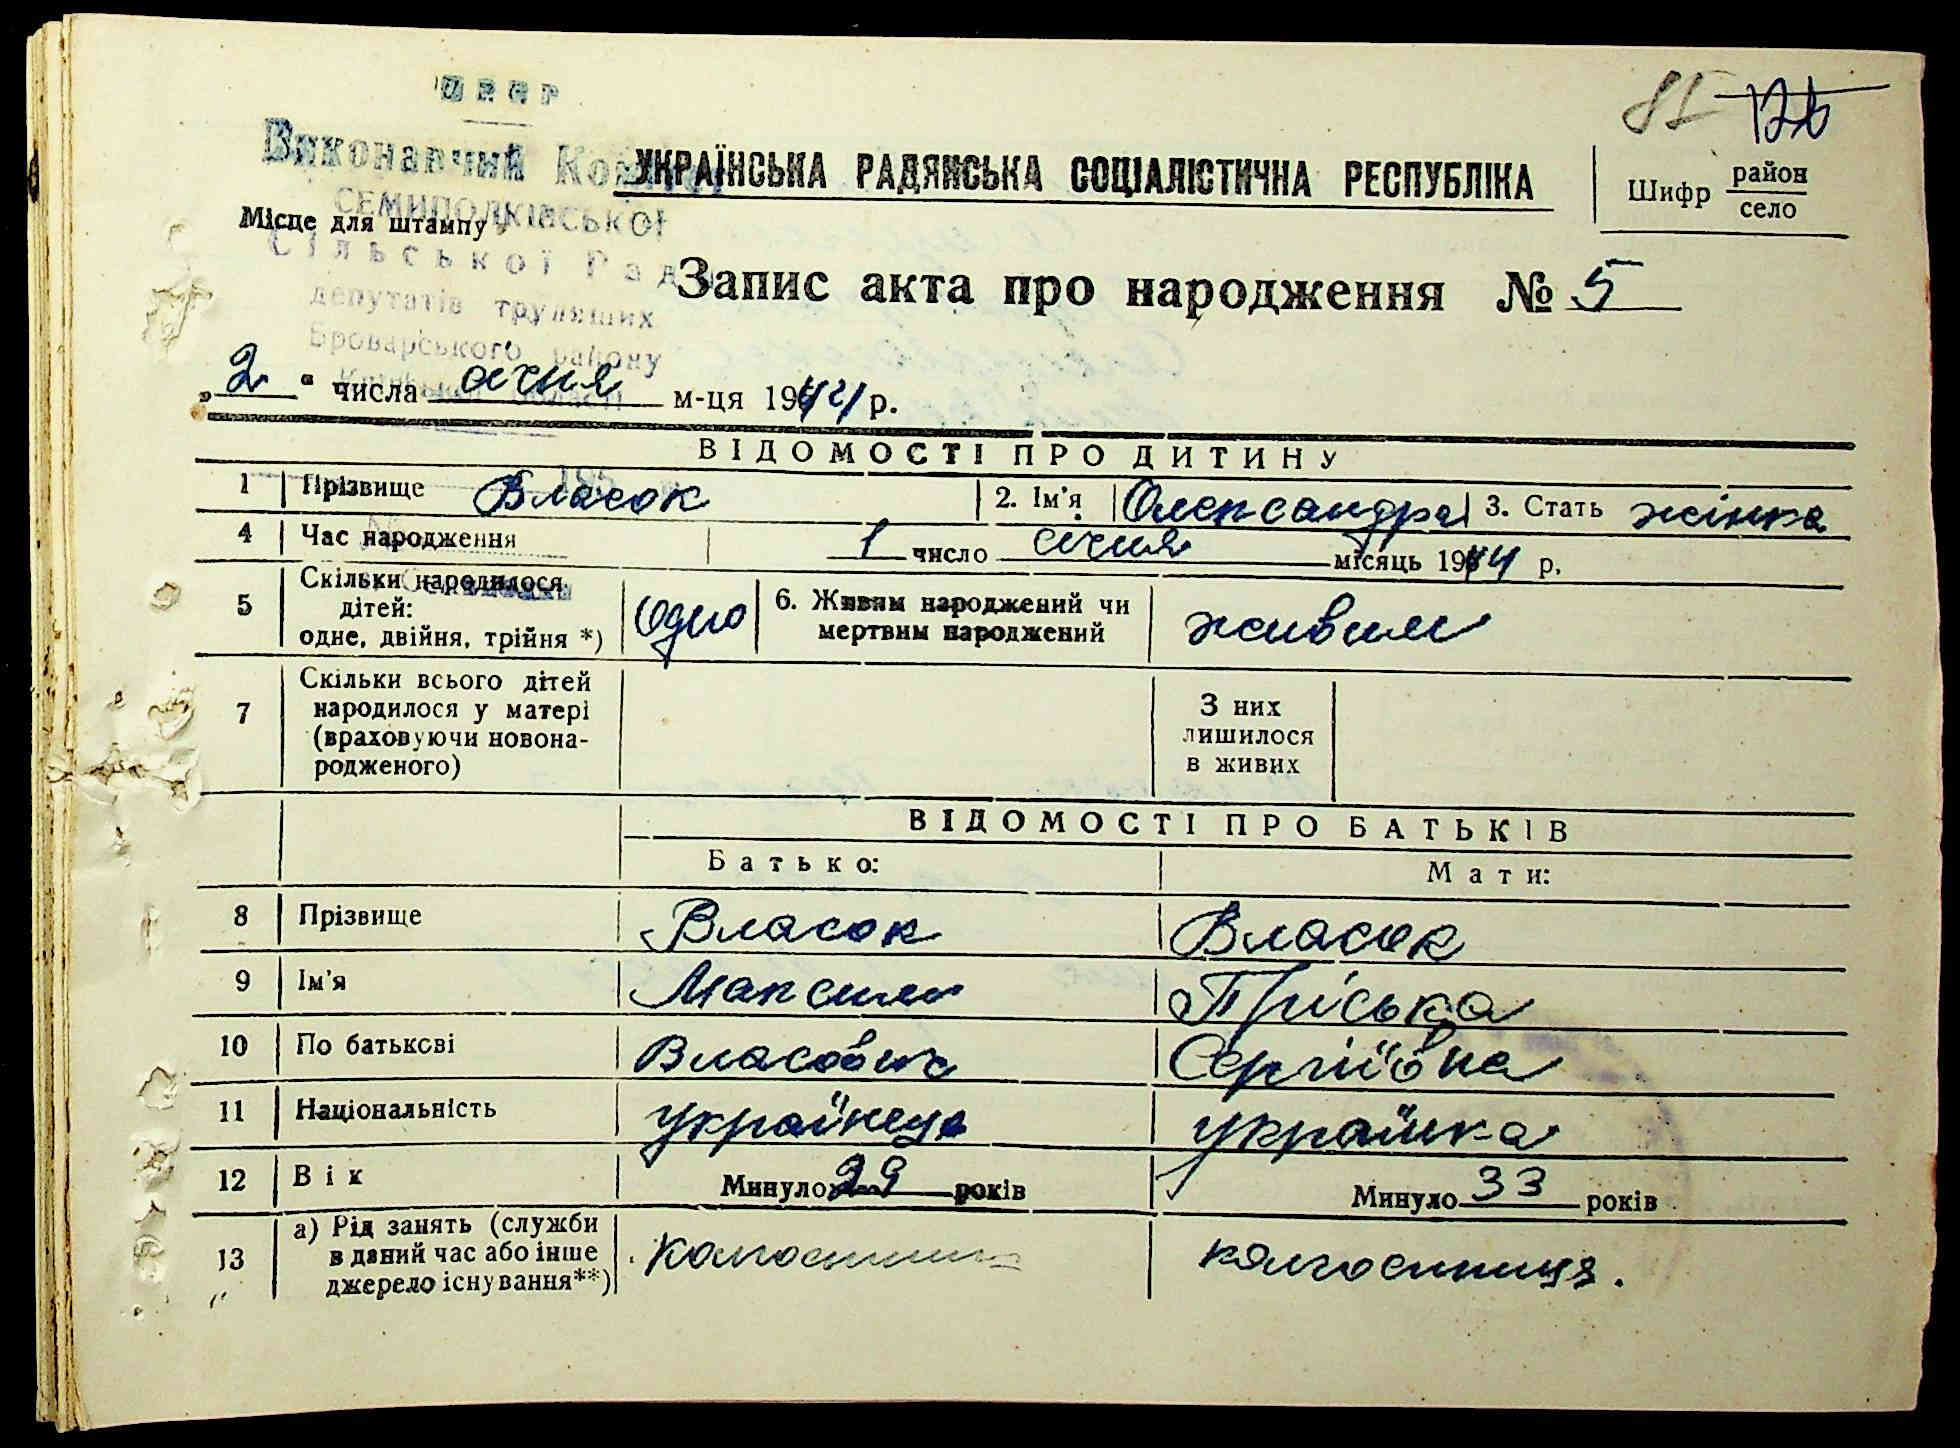 УРСР
Виконавчий Комітет
СЕМИПОЛКІВСЬКОЇ
Сільської Ради
депутатів трудящих
Броварського району
Київської області
81 126
УКРАЇНСЬКА РАДЯНСЬКА СОЦІАЛІСТИЧНА РЕСПУБЛІКА
Шифр район
село
Місце для штампу
Запис акта про народження № 5
„2" числа січня м-ця 1944 р.
ВІДОМОСТІ ПРО ДИТИНУ
195
1 Прізвище Власок 2. Ім'я Олександра 3. Стать жінка
4 Час народження 1 число січня місяць 1944 р.
5 Скільки народилося
дітей:
одне, двійня, трійня *) Одно 6. Живим народжений чи
мертвим народжений живим
7 Скільки всього дітей
народилося у матері
(враховуючи новона-
родженого)
З них
лишилося
в живих
ВІДОМОСТІ ПРО БАТЬКІВ
Батько: Мати:
8 Прізвище Власок Власок
9 Ім'я Максим Пріська
10 По батькові Власович Сергіївна
11 Національність українець українка
12 Вік Минуло 29 років Минуло 33 років
13 а) Рід занять (служби
в даний час або інше
джерело існування**) колгоспник колгоспниця.